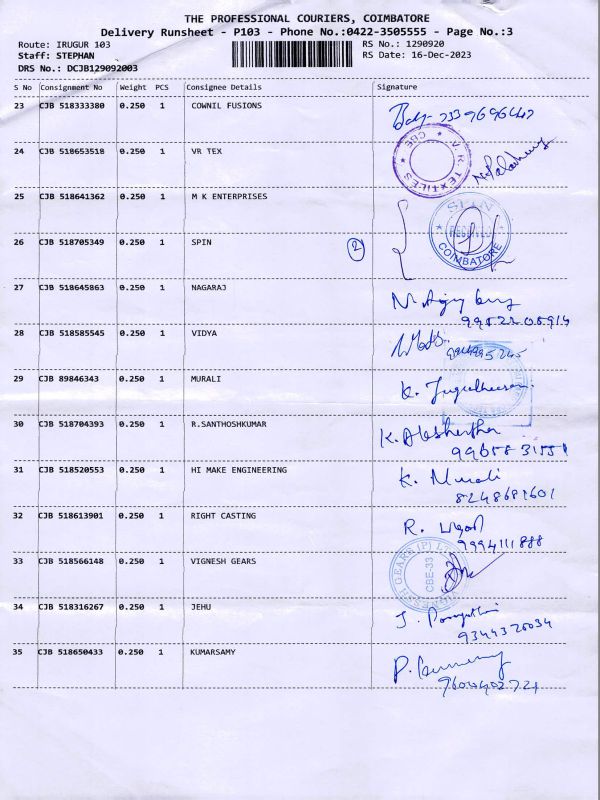 THE PROFESSIONAL COURIERS, COIMBATORE
Delivery Runsheet - P103 - Phone No.:0422-3505555 - Page No.:3
Route: IRUGUR 103 RS No.: 1290920
Staff: STEPHAN RS Date: 16-Dec-2023
DRS No.: DCJB129092003
S No Consignment No Weight PCS Consignee Details Signature
23 CJB 518333380 0.250 1 COWNIL FUSIONS
24 CJB 518653518 0.250 1 VR TEX
V.R. TEXTILES CBE
25 CJB 518641362 0.250 1 M K ENTERPRISES
SPIN
RECEIVED
COIMBATORE
26 CJB 518705349 0.250 1 SPIN 2
27 CJB 518645863 0.250 1 NAGARAJ
28 CJB 518585545 0.250 1 VIDYA
29 CJB 89846343 0.250 1 MURALI
30 CJB 518704393 0.250 1 R.SANTHOSHKUMAR
31 CJB 518520553 0.250 1 HI MAKE ENGINEERING K. Murali
8248681601
32 CJB 518613901 0.250 1 RIGHT CASTING R.
9994111888
33 CJB 518566148 0.250 1 VIGNESH GEARS
GEARS (P) L
CBE-33
34 CJB 518316267 0.250 1 JEHU J.
9344320034
35 CJB 518650433 0.250 1 KUMARSAMY P.
9600402721